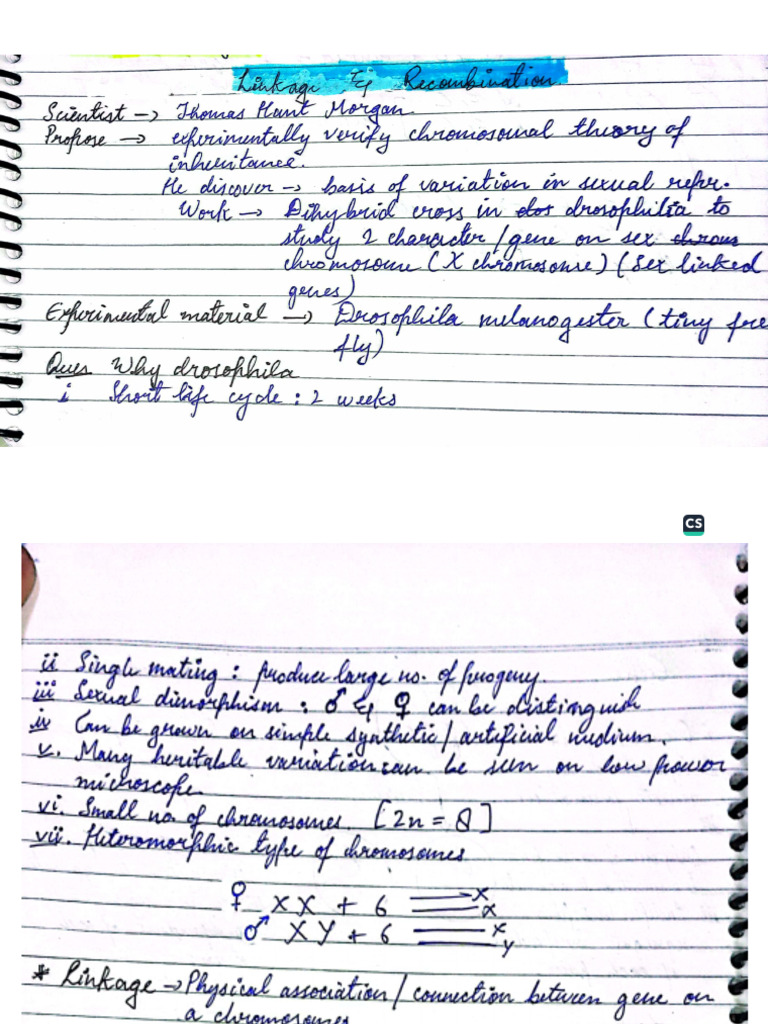 Linkage & Recombination
Scientist → Thomas Hunt Morgan
Propose → experimentally verify chromosomal theory of
inheritance.
He discover → basis of variation in sexual repr.
Work → Dihybrid cross in dos drosophilia to
study 2 character/gene on sex chrous
chromosome (X chromosome) (Sex linked
genes)
Experimental material → Drosophila melanogester (tiny
fly)
Ques Why drosophila
i Short life cycle : 2 weeks
CS
ii Single mating : produce large no. of progeny.
iii Sexual dimorphism : ♂ & ♀ can be distinguish
iv Can be grown on simple synthetic/artificial medium.
v. Many heritable variation can be seen on low power
microscope
vi. Small no. of chromosomes. [2n = 8]
vii. Heteromorphic type of chromosomes
♀ XX + 6 x
x
♂ XY + 6 x
y
* Linkage → Physical association/connection between gene on
a chromosomes